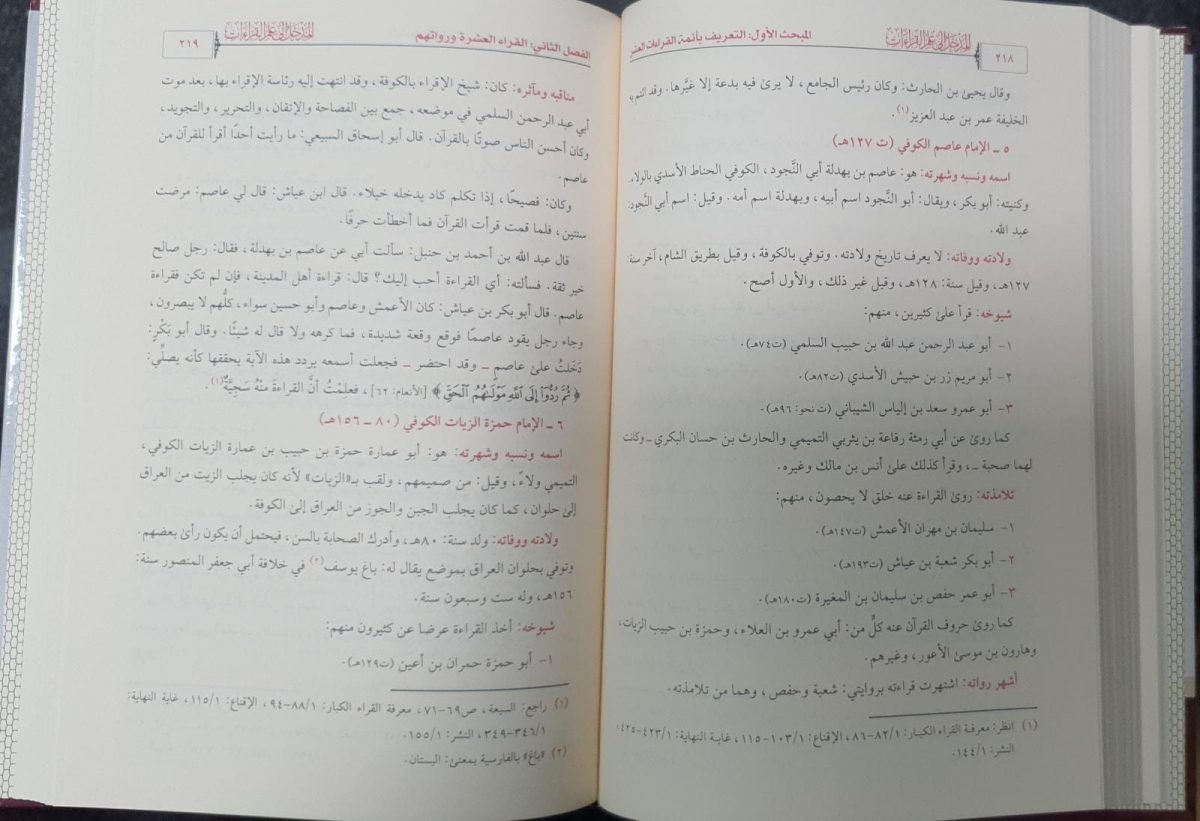 المدخل إلى علم القراءات
المبحث الأول: التعريف بأئمة القراءات العشر
٢١٨
وقال يحيىٰ بن الحارث: وكان رئيس الجامع، لا يرىٰ فيه بدعة إلا غيَّرها. وقد ائتم به
الخليفة عمر بن عبد العزيز(١).
٥ ـ الإمام عاصم الكوفي (ت ١٢٧هـ)
اسمه ونسبه وشهرته: هو: عاصم بن بهدلة أبي النَّجود، الكوفي الحناط الأسدي بالولاء.
وكنيته: أبو بكر، ويقال: أبو النَّجود اسم أبيه، وبهدلة اسم أمه. وقيل: اسم أبي النَّجود:
عبد الله.
ولادته ووفاته: لا يعرف تاريخ ولادته. وتوفي بالكوفة، وقيل بطريق الشام، آخر سنة:
١٢٧هـ، وقيل سنة: ١٢٨هـ، وقيل غير ذلك، والأول أصح.
شيوخه: قرأ علىٰ كثيرين، منهم:
١- أبو عبد الرحمن عبد الله بن حبيب السلمي (ت٧٤هـ).
٢- أبو مريم زر بن حبيش الأسدي (ت٨٢هـ).
٣- أبو عمرو سعد بن إلياس الشيباني (ت نحو: ٩٦هـ).
كما روىٰ عن أبي رمثة رفاعة بن يثربي التميمي والحارث بن حسان البكري ـ وكانت
لهما صحبة ـ، وقرأ كذلك علىٰ أنس بن مالك وغيره.
تلامذته: روىٰ القراءة عنه خلق لا يحصون، منهم:
١- سليمان بن مهران الأعمش (ت١٤٧هـ).
٢- أبو بكر شعبة بن عياش (ت١٩٣هـ).
٣- أبو عمر حفص بن سليمان بن المغيرة (ت١٨٠هـ).
كما روىٰ حروف القرآن عنه كلٌّ من: أبي عمرو بن العلاء، وحمزة بن حبيب الزيات،
وهارون بن موسىٰ الأعور، وغيرهم.
أشهر رواته: اشتهرت قراءته بروايتي: شعبة وحفص، وهما من تلامذته.
(١) انظر: معرفة القراء الكبار: ٨٢/١-٨٦، الإقناع: ١٠٣/١-١١٥، غاية النهاية: ٤٢٣/١-٤٢٥،
النشر: ١٤٤/١.
الفصل الثاني: القراء العشرة ورواتهم
المدخل إلى علم القراءات
٢١٩
مناقبه ومآثره: كان: شيخ الإقراء بالكوفة، وقد انتهت إليه رئاسة الإقراء بها، بعد موت
أبي عبد الرحمن السلمي في موضعه، جمع بين الفصاحة والإتقان، والتحرير، والتجويد،
وكان أحسن الناس صوتًا بالقرآن. قال أبو إسحاق السبيعي: ما رأيت أحدًا أقرأ للقرآن من
عاصم.
وكان: فصيحًا، إذا تكلم كاد يدخله خيلاء. قال ابن عياش: قال لي عاصم: مرضت
سنتين، فلما قمت قرأت القرآن فما أخطأت حرفًا.
قال عبد الله بن أحمد بن حنبل: سألت أبي عن عاصم بن بهدلة، فقال: رجل صالح
خير ثقة. فسألته: أي القراءة أحب إليك؟ قال: قراءة أهل المدينة، فإن لم تكن فقراءة
عاصم. قال أبو بكر بن عياش: كان الأعمش وعاصم وأبو حسين سواء، كلُّهم لا يبصرون،
وجاء رجل يقود عاصمًا فوقع وقعة شديدة، فما كرهه ولا قال له شيئًا. وقال أبو بَكْرٍ:
دَخَلتُ علىٰ عاصم ـ وقد احتضر ـ فجعلت أسمعه يردد هذه الآية يحققها كأنه يصلِّي:
﴿ثُمَّ رُدُّوٓا۟ إِلَى ٱللَّهِ مَوْلَىٰهُمُ ٱلْحَقِّ﴾ [الأنعام: ٦٢]، فعلِمْتُ أنَّ القراءةَ منْهُ سَجِيَّةٌ(١).
٦ ـ الإمام حمزة الزيات الكوفي (٨٠ ـ ١٥٦هـ)
اسمه ونسبه وشهرته: هو: أبو عمارة حمزة بن حبيب بن عمارة الزيات الكوفي،
التميمي ولاءً، وقيل: من صميمهم، ولقب بـ«الزيات» لأنه كان يجلب الزيت من العراق
إلىٰ حلوان، كما كان يجلب الجبن والجوز من العراق إلىٰ الكوفة.
ولادته ووفاته: ولد سنة: ٨٠هـ، وأدرك الصحابة بالسن، فيحتمل أن يكون رأىٰ بعضهم.
وتوفي بحلوان العراق بموضع يقال له: باغ يوسف(٢) في خلافة أبي جعفر المنصور سنة:
١٥٦هـ، وله ست وسبعون سنة.
شيوخه: أخذ القراءة عرضا عن كثيرون منهم:
١- أبو حمزة حمران بن أعين (ت١٢٩هـ).
(١) راجع: السبعة، ص٦٩-٧١، معرفة القراء الكبار: ٨٨/١-٩٤، الإقناع: ١١٥/١، غاية النهاية:
٣٤٦/١-٣٤٩، النشر: ١٥٥/١.
(٢) «باغ» بالفارسية بمعنىٰ: البستان.